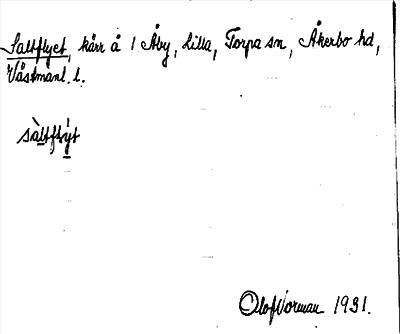 Saltflyet, kärr å 1 Åby, Lilla, Torpa sn, Åkerbo hd,
Västmanl. l.
sàltflýt
Olof Norman 1931.